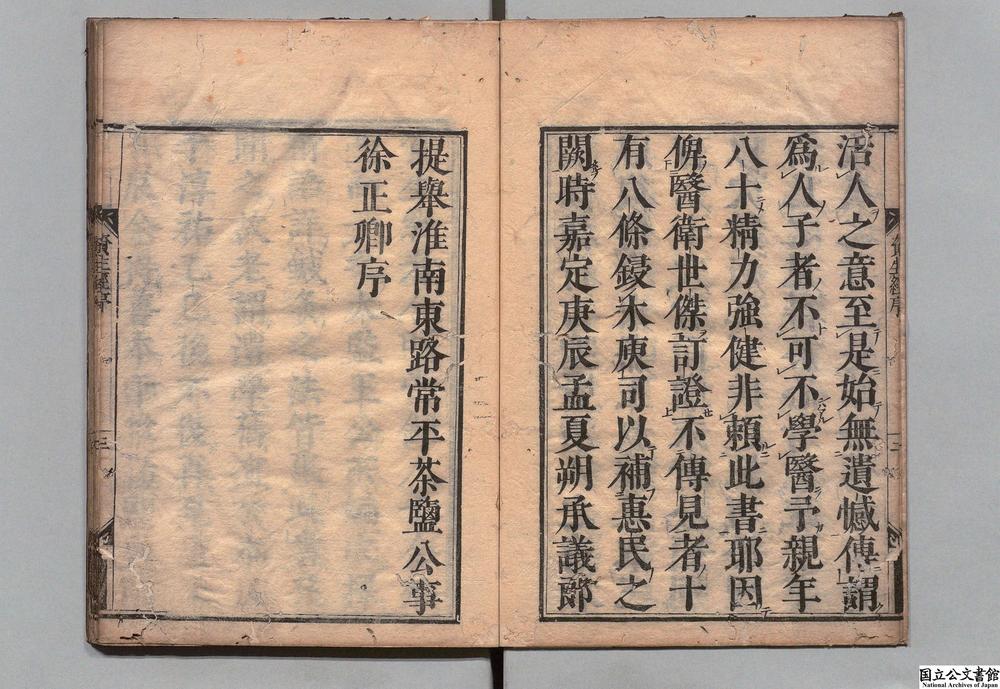 活人之意至是始無遺憾傳謂
爲人子者不可不學醫予親年
八十精力強健非頼此書耶因
俾醫衛世傑訂證不傳見者十
有八條鋟木庾司以補惠民之
闕時嘉定庚辰孟夏朔承議郎
提舉淮南東路常平茶鹽公事
徐正卿序
資生經序
三
国立公文書館
National Archives of Japan